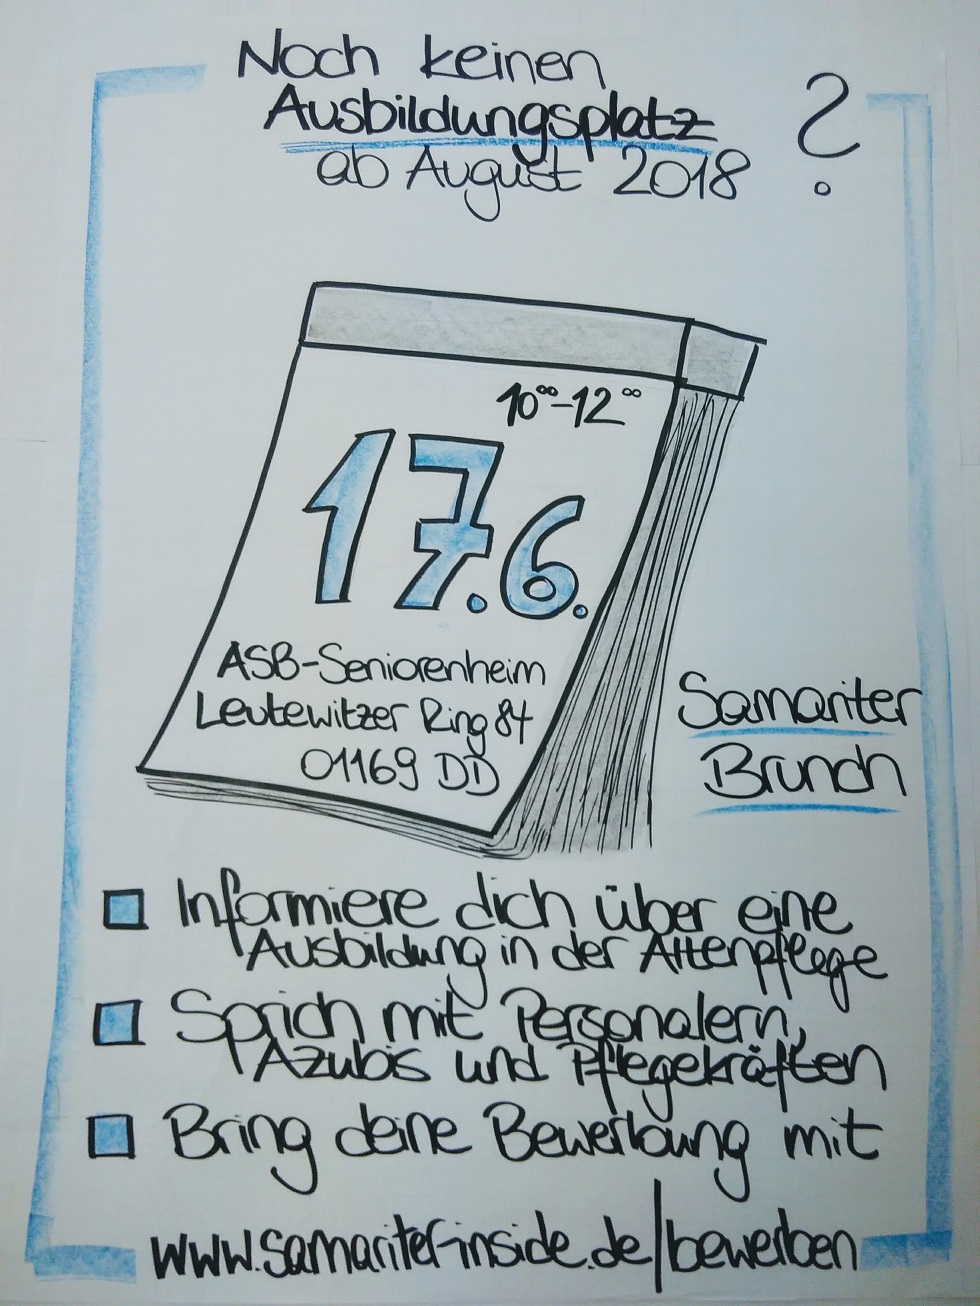 Noch keinen
Ausbildungsplatz
ab August 2018 ?
10⁰⁰-12⁰⁰
17.6.
ASB-Seniorenheim
Leutewitzer Ring 84
01169 DD
Samariter
Brunch
Informiere dich über eine
Ausbildung in der Altenpflege
Sprich mit Personalern,
Azubis und Pflegekräften
Bring deine Bewerbung mit
www.samariter-inside.de/bewerben